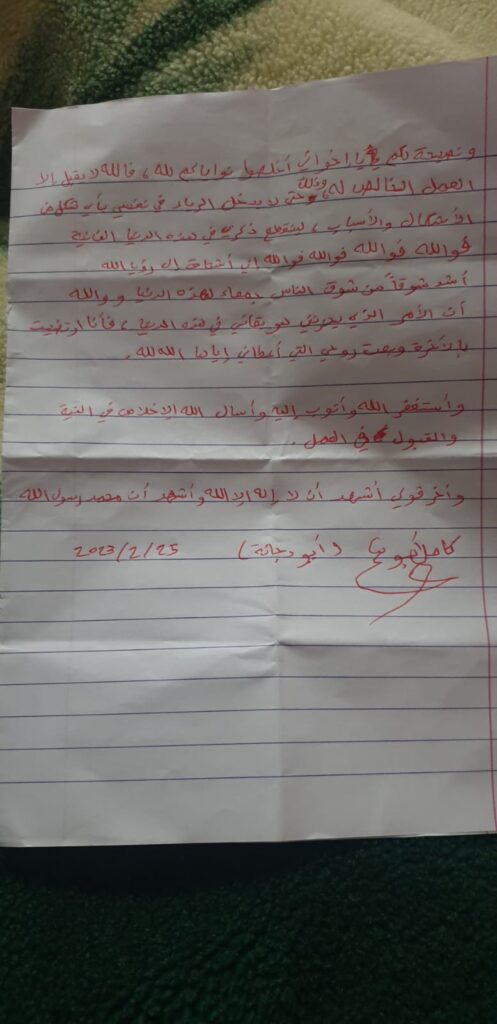 ونصيحة لكم يا إخواني أخلصوا نواياكم لله، فالله لا يقبل إلا
العمل الخالص له، وذلك حتى لا يدخل الرياء في نفسي بأي شكل من
الأشكال والأسباب، لينقطع ذكري في هذه الدنيا الفانية
فوالله فوالله فوالله فوالله إني أشتاق إلى رؤيا الله
أشد شوقاً من شوق الناس جمعاء لهذه الدنيا ووالله
أن الأمر الذي يحزنني هو بقائي في هذه الدنيا، فأنا ارتضيت
بالآخرة وبعت روحي التي أعطاني إياها الله لله.
وأستغفر الله وأتوب إليه وأسأل الله الإخلاص في النية
والقبول في العمل.
وآخر قولي أشهد أن لا إله إلا الله وأشهد أن محمد رسول الله
(أبو دجانة) 2023/2/25